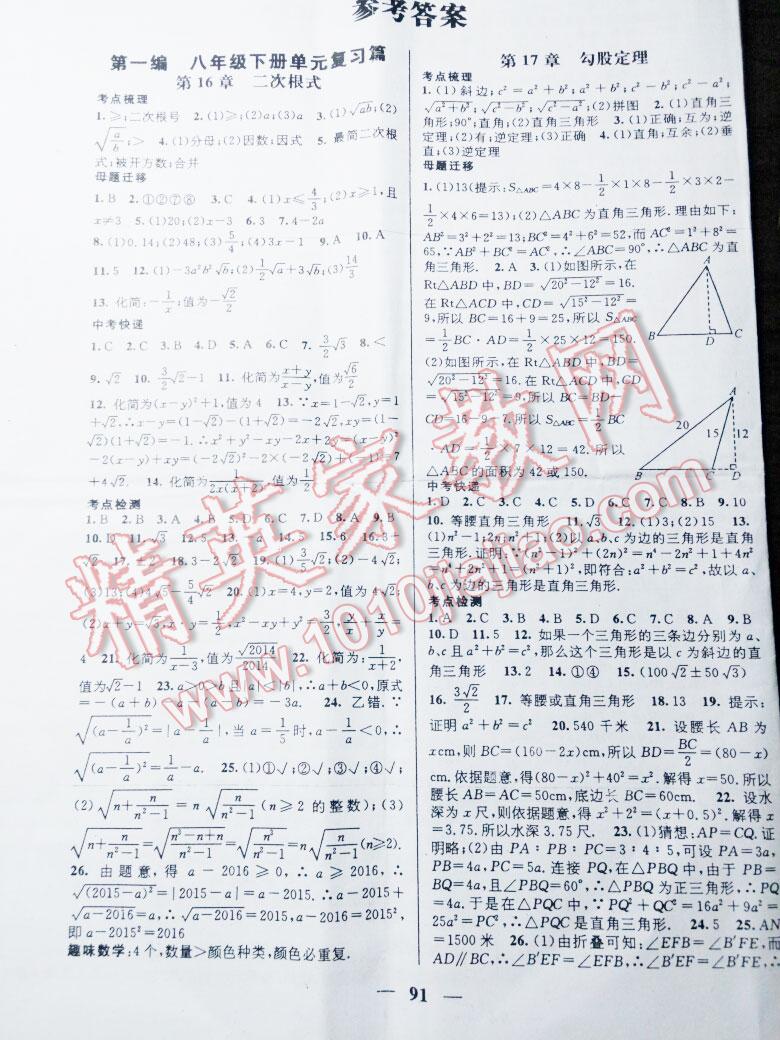 参考答案
第一编 八年级下册单元复习篇
第16章 二次根式
考点梳理
1.≥;二次根号 2.(1)≥;(2)a;(3)a 3.(1)√ab;(2)
√(a/b);> 4.(1)分母;(2)因数;因式 5.最简二次根
式;被开方数;合并
母题迁移
1.B 2.①②⑦⑧ 3.C 4.(1)x≤4/3;(2)x≥1,且
x≠3 5.(1)20;(2)x-3 6.3 7.4-2a
8.(1)0.14;(2)48;(3)5/4;(4)3x-1 9.A 10.A
11.5 12.(1)-3a²b²√b;(2)1/2√a+3√b;(3)14/3
13.化简:-1/x;值为-√2/2
中考快递
1.C 2.C 3.B 4.D 5.A 6.C 7.3/2√3 8.<
9.√2 10.3/2√2-1 11.化简为(x+y)/(x-y),值为√6/2
12.化简为(x-y)²+1,值为4 13.∵x=1-√2,y=1
+√2,∴x-y=(1-√2)-(1+√2)=-2√2,xy=(1-
√2)(1+√2)=-1.∴x²+y²-xy-2x+2y=(x-y)²
-2(x-y)+xy=(-2√2)²-2×(-2√2)+(-1)=7
+4√2. 14.化简为1/(2x(x+2)),值为1/2
考点检测
1.B 2.B 3.A 4.C 5.B 6.C 7.D 8.A 9.B
10.D 11.D 12.√5 13.5 14.-a 15.5 16.6
17.±2 18.3-2√2 19.(1)√5;(2)-4√2;
4 21.化简为1/(x-3),值为√2014/2014 22.化简为1/(x+2),
值为√2-1 23.a>0>b且|a|<|b|,∴a+b<0,原式
=-(a+b)-a-(a-b)=-3a. 24.乙错.∵
√((a-1/a)²)=|a-1/a|,当a=1/5时,a-1/a<0,∴
√((a-1/a)²)=1/a-a. 25.(1)①√;②√;③√;④√;
(2)√(n+n/(n²-1))=n√(n/(n²-1))(n≥2的整数);(3)
√(n+n/(n²-1))=√((n³-n+n)/(n²-1))=√(n³/(n²-1))=n√(n/(n²-1))
26.由题意,得a-2016≥0,∴a≥2016,∴
√((2015-a)²)=|2015-a|=a-2015.∴a-2015+
√(a-2016)=a,∴√(a-2016)=2015,∴a-2016=2015²,
即a-2015²=2016
趣味数学:4个,数量>颜色种类,颜色必重复.
第17章 勾股定理
考点梳理
1.(1)斜边;c²=a²+b²;a²+b²;c²-b²;c²-a²;
√(a²+b²);√(c²-b²);√(c²-a²);(2)拼图 2.(1)直角三
角形;90°;直角;(2)直角三角形 3.(1)正确;互为;逆
定理;(2)有;逆定理;(3)正确 4.(1)直角;互余;(2)垂
直;(3)逆定理
母题迁移
1.(1)13(提示:S△ABC=4×8-1/2×1×8-1/2×3×2-
1/2×4×6=13);(2)△ABC为直角三角形.理由如下:
AB²=3²+2²=13,BC²=4²+6²=52,而AC²=1²+8²=
65,∵AB²+BC²=AC²,∴∠ABC=90°,∴△ABC为直
角三角形. 2.A 3.(1)如图所示,在
Rt△ABD中,BD=√(20²-12²)=16.
在Rt△ACD中,CD=√(15²-12²)=
9,所以BC=16+9=25,所以S△ABC=
1/2BC·AD=1/2×25×12=150.
A
B
D
C
(2)如图所示,在Rt△ABD中,BD=
√(20²-12²)=16.在Rt△ACD中,
CD=√(15²-12²)=9,所以BC=BD-
CD=16-9=7.所以S△ABC=1/2BC
·AD=1/2×7×12=42.所以
△ABC的面积为42或150.
A
20
15
12
B
C
D
中考快递
1.D 2.C 3.C 4.C 5.D 6.C 7.C 8.B 9.10
10.等腰直角三角形 11.√3 12.(1)3;(2)15 13.
(1)n²-1;2n;n²+1;(2)以a、b、c为边的三角形是直角
三角形.证明:∵(n²-1)²+(2n)²=n⁴-2n²+1+4n²
=n⁴+2n²+1=(n²+1)²,即符合:a²+b²=c²,故以a、
b、c为边的三角形是直角三角形.
考点检测
1.A 2.C 3.B 4.C 5.D 6.D 7.C 8.A 9.B
10.D 11.5 12.如果一个三角形的三条边分别为a、
b、c,且满足a²+b²=c²,那么这个三角形是以c为斜边的直
角三角形 13.2 14.①④ 15.(100√2±50√3)
16.3√2/2 17.等腰或直角三角形 18.13 19.提示:
证明a²+b²=c² 20.540千米 21.设腰长AB为
xcm,则BC=(160-2x)cm,所以BD=BC/2=(80-x)
cm.依据题意,得(80-x)²+40²=x².解得x=50.所以
腰长AB=AC=50cm,底边长BC=60cm. 22.设水
深为x尺,则依据题意,得x²+2²=(x+0.5)².解得x
=3.75.所以水深3.75尺. 23.(1)猜想:AP=CQ.证
明略;(2)由PA∶PB∶PC=3∶4∶5,可设PA=3a,
PB=4a,PC=5a.连接PQ,在△PBQ中,由于PB=
BQ=4a,且∠PBQ=60°,∴△PBQ为正三角形.∴PQ
=4a.于是在△PQC中,∵PQ²+QC²=16a²+9a²=
25a²=PC²,∴△PQC是直角三角形. 24.5 25.AN
=1500米 26.(1)由折叠可知:∠EFB=∠B′FE,而
AD∥BC,∴∠B′EF=∠EFB,∴∠B′EF=∠B′FE,∴
91
精英家教网
www.1010jiajiao.com